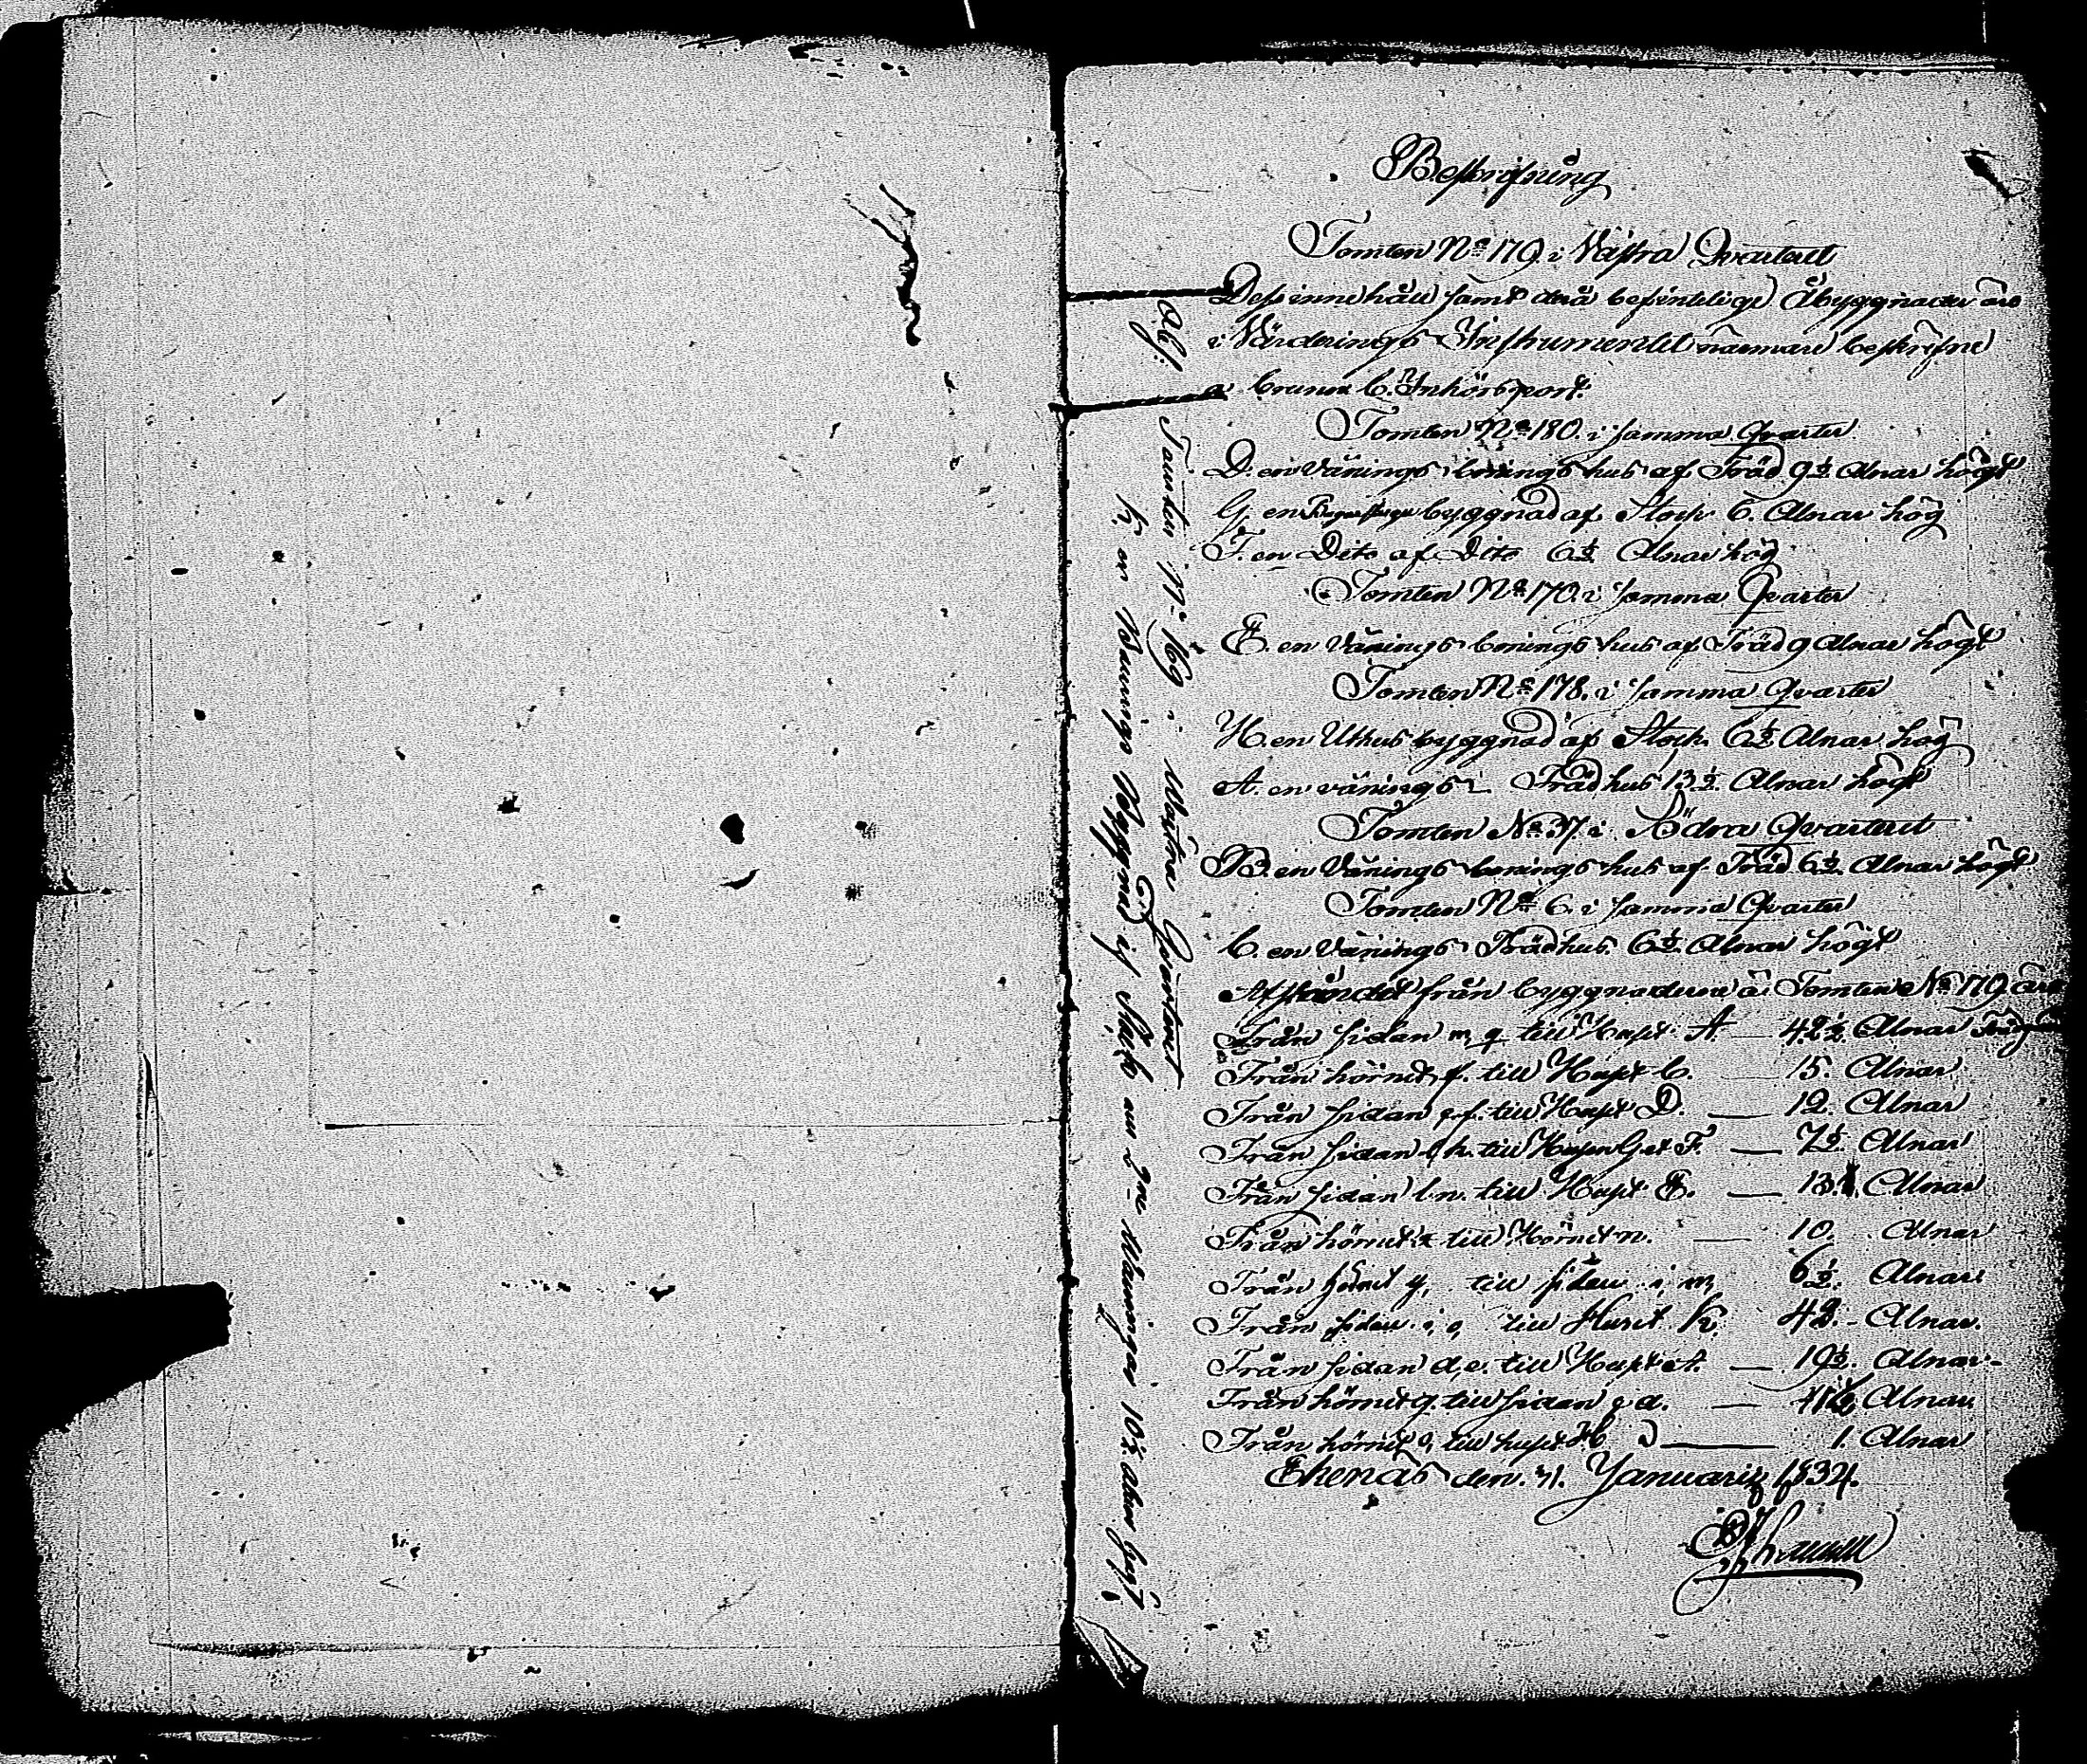 Beskrifning
Tomten No 179 i Västra Qvarteret
Dess innehåll samt derå befintelige Åbyggnader äro
i Värderings Instrumentet närmare beskrifne
a. brunn b. Inkörsport.
Tomten No 180. i samma Qvarter
D. en Vånings bonings hus af Träd 9½ Alnar högt
G. en byggnad af Stock 6. Alnar hög
F. en Dito af Dito 6½ Alnar hög
Tomten No 170. i samma Qvarter
E. en Vånings bonings hus af Träd 9 Alnar högt
Tomten No 178. i samma Qvarter
H. en Uthus byggnad af Stock 6½ Alnar hög
A. en vånings Trädhus 13½ Alnar högt
Tomten No 37. i Södra Qvarteret
B. en Vånings bonings hus af Träd 6½ Alnar högt
Tomten No 6. i samma Qvarter
C. en Vånings Trädhus 6½ Alnar högt
Afståndet från byggnaderna å Tomten No 179 äro
Från sidan m, q till Huset A. — 42½ Alnar
Från hörnet f. till Huset C. — 15. Alnar
Från sidan g.f. till Huset D. — 12. Alnar
Från sidan h. till Husen G et F. — 7½ Alnar
Från sidan l.n. till Huset E. — 13. Alnar
Från hörnet till Hörnet n. — 10. Alnar
Från hörnet y, till sidan i, m, 6½ Alnar
Från sidan i, o, till Huset K. 42. - Alnar.
Från sidan d,e. till Huset A. — 19½. Alnar -
Från hörnet g. till sidan d. — Alnar
Från hörnet till huset H — 1. Alnar
Ekenäs den 31. Januarii 1834.
Tomten No 169 i Westra Qvarteret
K. en Wånings Byggnad af Stock om 2ne Wåningar 10½ alnar högt